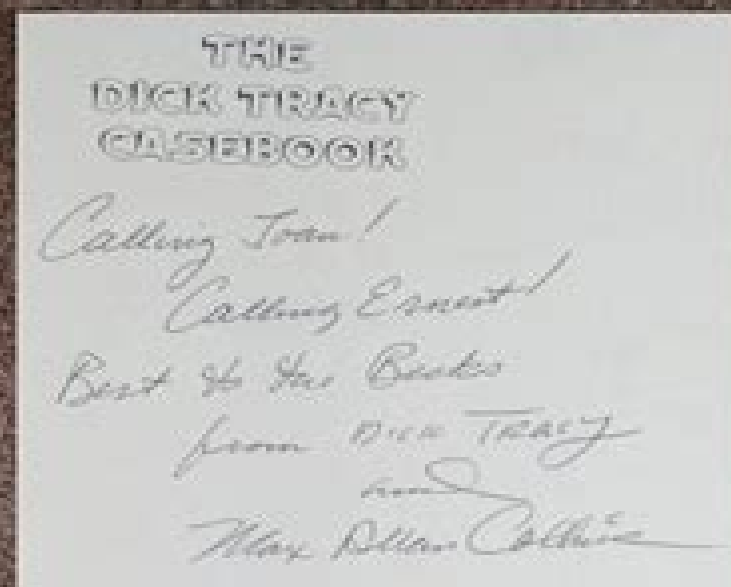 THE
DICK TRACY
CASEBOOK
Calling Joan!
Calling Ernest!
Best to the
from DICK TRACY
and
Max Allan Collins